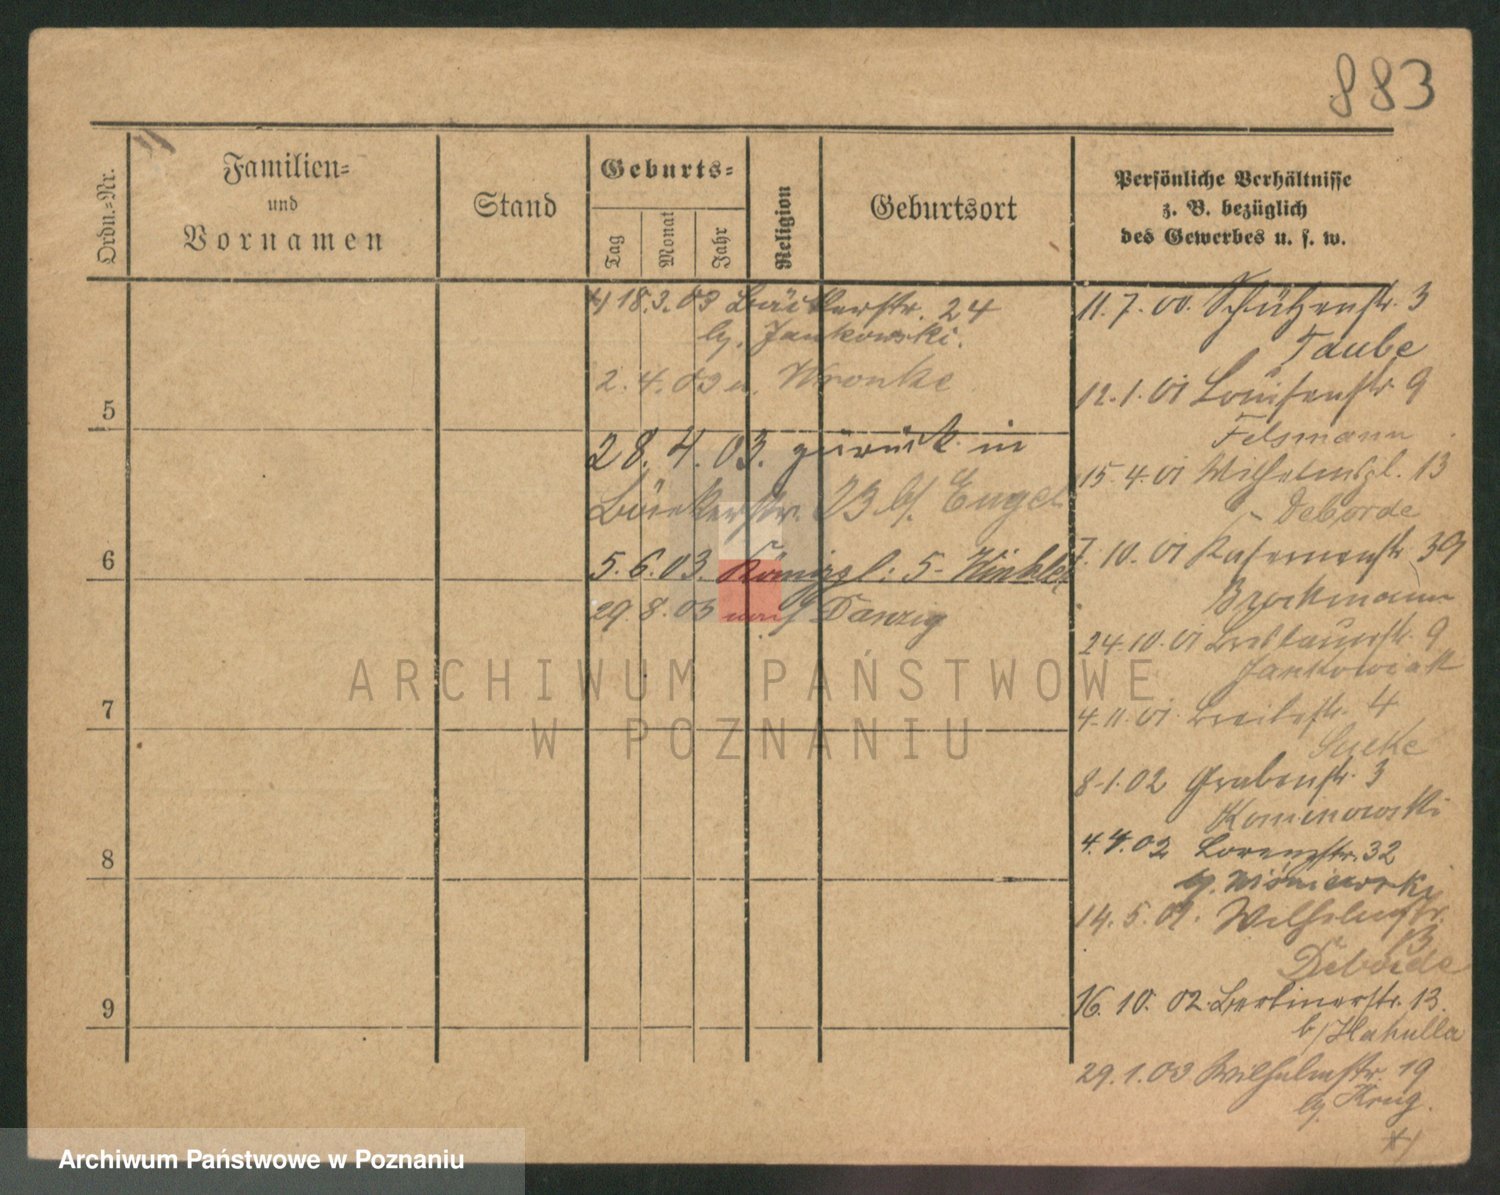 883
Ordn.-Nr.
Familien-
und
Vornamen
Stand
Geburts-
Tag
Monat
Jahr
Religion
Geburtsort
Persönliche Verhältnisse
z. B. bezüglich
des Gewerbes u. s. w.
5
6
7
8
9
11.7.00. Schützenstr. 3
Taube
12.1.01 Louisenstr. 9
Felsmann
15.4.01 Wilhelmspl. 13
Deborde
7.10.01 Kasernenstr. 39
Brockmann
24.10.01 Breslauerstr. 9
Jankowiak
4.11.01 Breitestr. 4
8.1.02 Grabenstr. 3
4.4.02 Lorenzstr. 32
bj. Wisniewski
14.5.02. Wilhelmstr.
13
Deborde
16.10.02. Berlinerstr. 13.
b/ Hakulla
29.1.03 Wilhelmstr. 19
bj. Krug.
*)
*) 18.3.03 Bäckerstr. 24
bj. Jankowski.
2.4.03 n. Wronke
28.4.03. zurück in
Bäckerstr. 23 b/. Engel
5.6.03. Königspl: 5 - Winkler
29.8.03 Danzig
ARCHIWUM PAŃSTWOWE
W POZNANIU
Archiwum Państwowe w Poznaniu